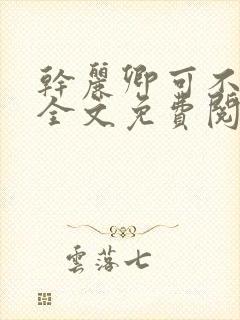 幹麗卿可不
全文免費閱
雲落七